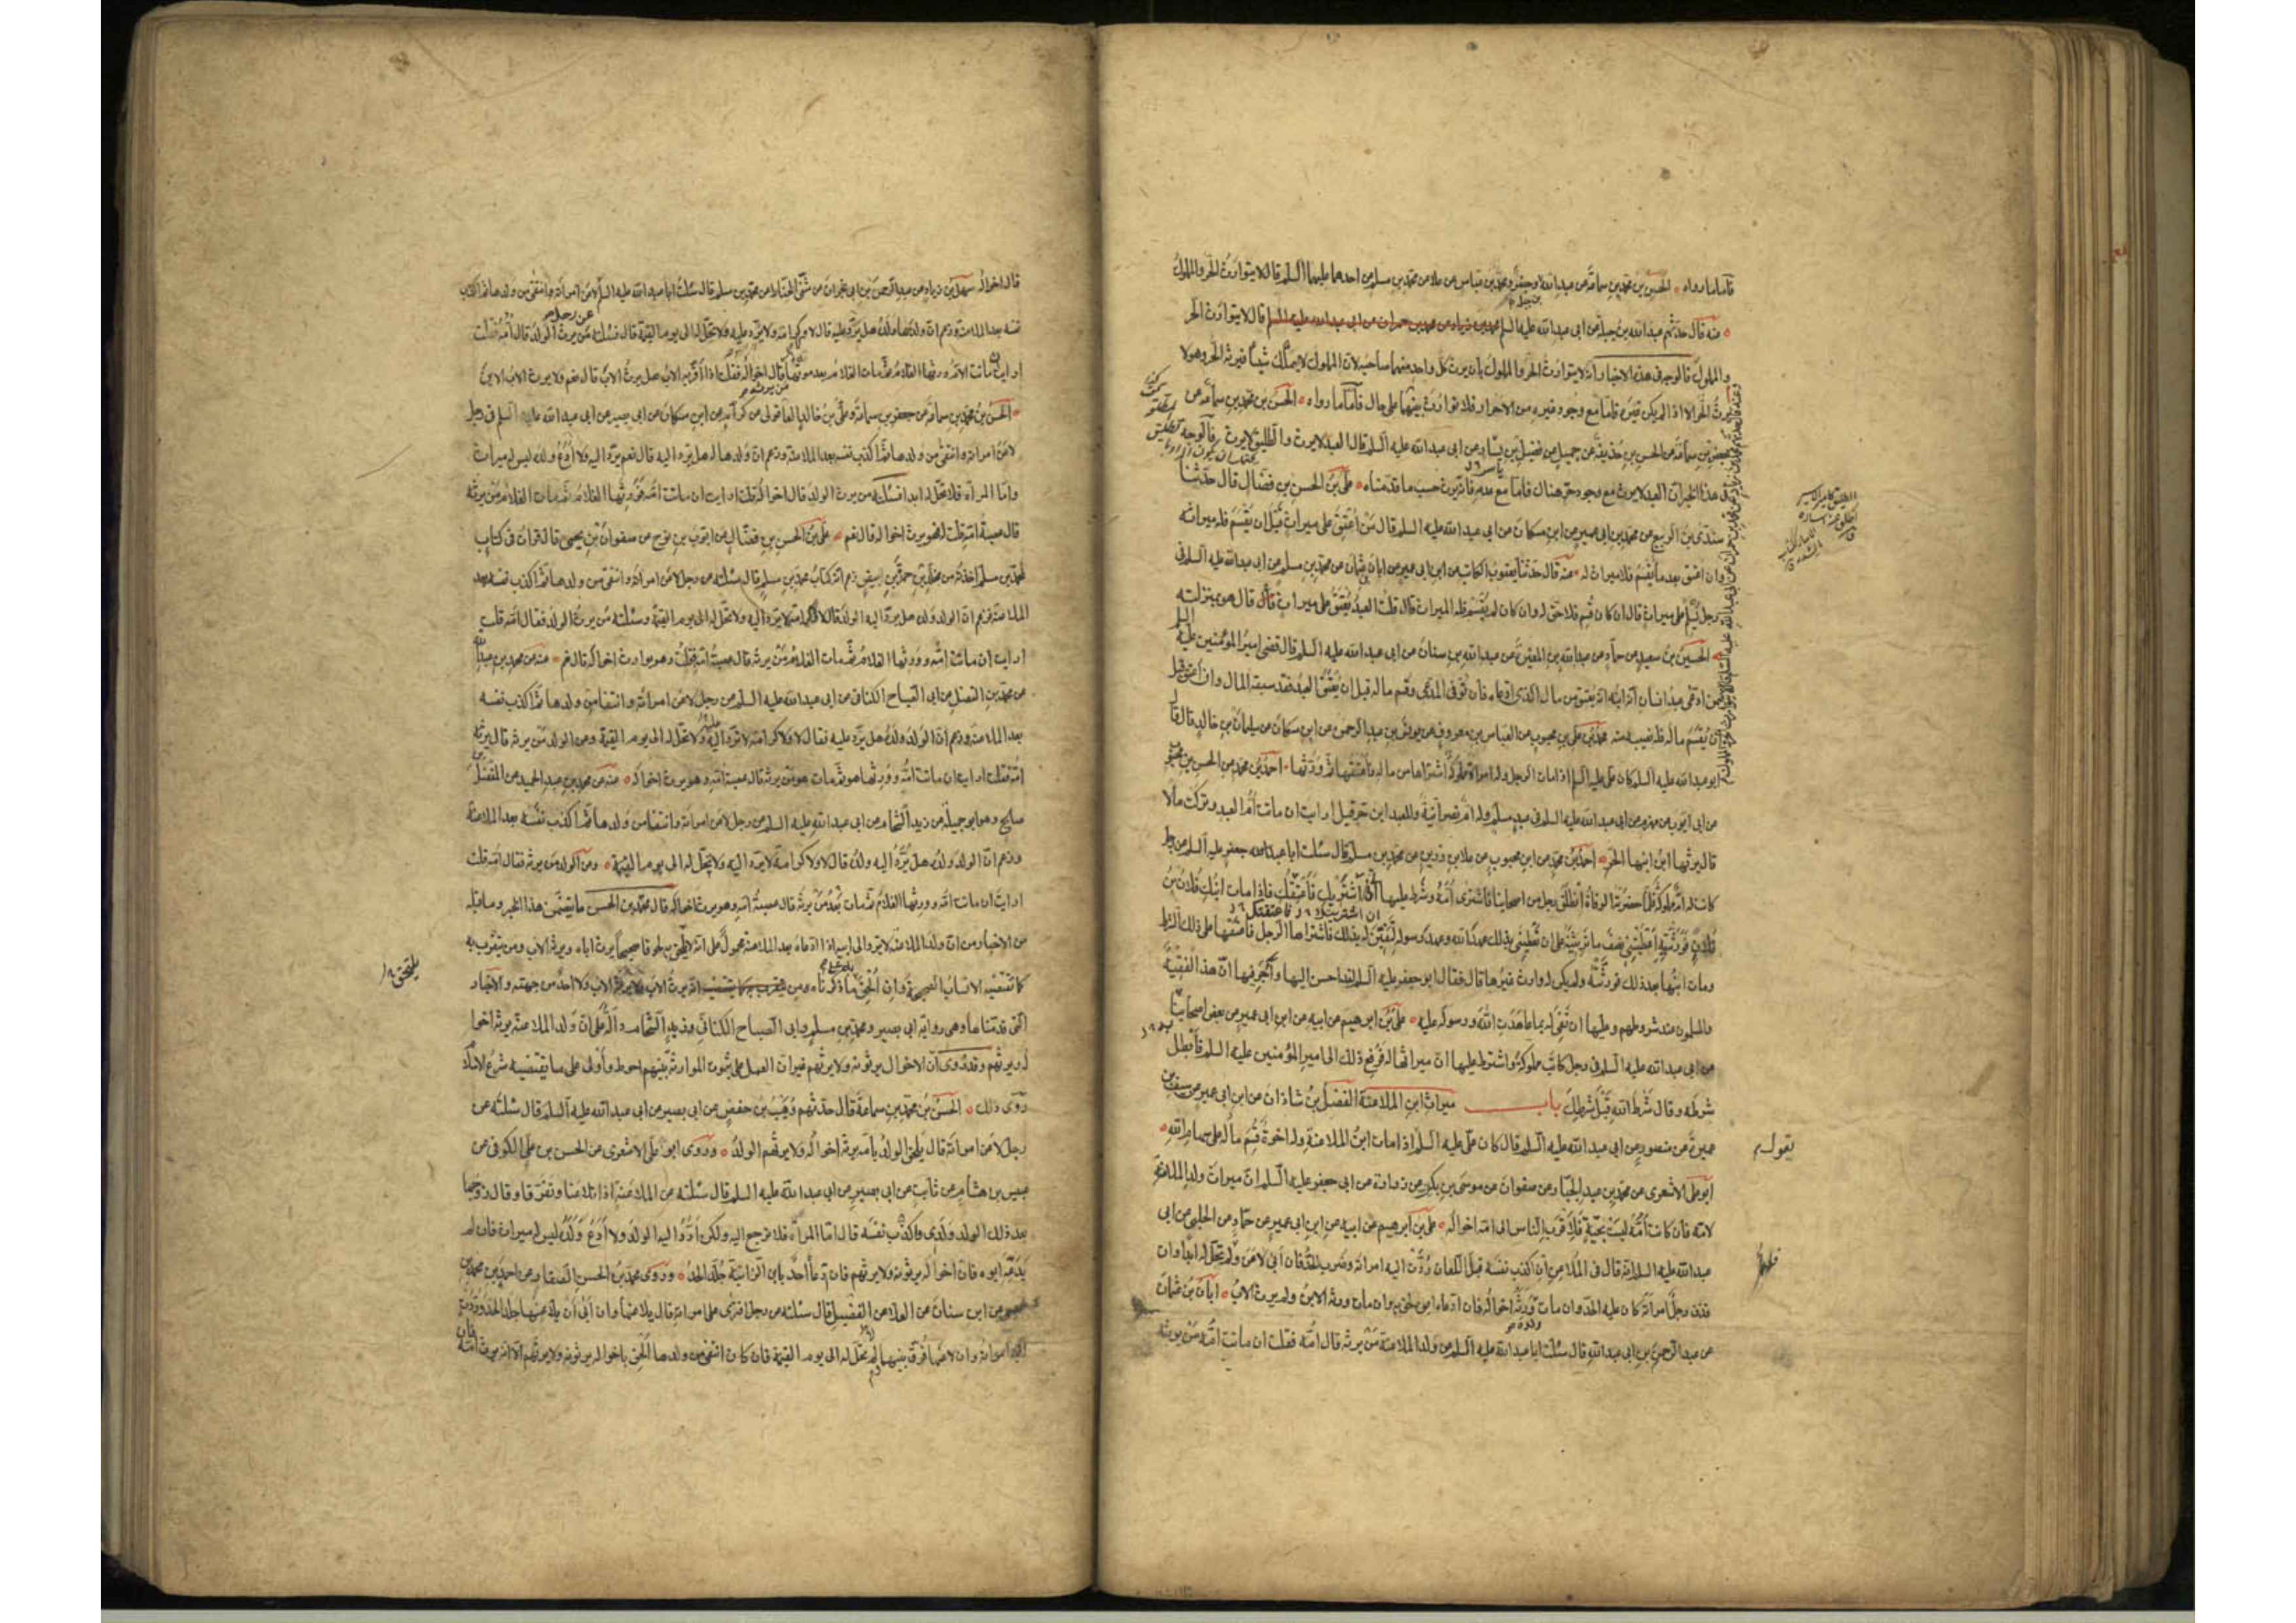 فأما ما رواه الحسن بن محمد بن سماعة عن عبد الله وجعفر ومحمد بن عباس عن علا عن محمد بن مسلم عن احدهما عليهما السلم قال لا يتوارث الحر والمملوك
عنه قال حدثهم عبد الله بن جبلة عن ابي عبد الله عليه السلم قال لا يتوارث الحر
والمملوك فالوجه في هذه الاخبار انه لا يتوارث الحر والمملوك بأن يرث كل واحد منهما صاحبه لان المملوك لا يملك شيئا فيرثه الحر وهو لا
يرث الحر الا اذا لم يكن غيره فاما مع وجود غيره من الاحرار فلا توارث بينهما على حال فأما ما رواه الحسن بن محمد بن سماعة عن
جعفر بن سماعة عن الحسن بن حذيفة عن جميل عن فضيل بن يسار عن ابي عبد الله عليه السلم قال العبد لا يرث والطليق لا يرث فالوجه
في هذا الخبر ان العبد لا يرث مع وجود حر هناك فاما مع عدمه فانه يرث حسب ما قدمناه علي بن الحسن بن فضال قال حدثنا
سندي بن الربيع عن محمد بن ابي عمير عن ابن مسكان عن ابي عبد الله عليه السلم قال من اعتق على ميراث قبل ان يقسم فله ميراثه
وان اعتق بعد ما يقسم فلا ميراث له عنه قال حدثنا يعقوب الكاتب عن ابن ابي عمير عن ابان بن عثمان عن محمد بن مسلم عن ابي عبد الله عليه السلم في
رجل يسلم على ميراث قال ان كان قسم فلا حق له وان كان لم يقسم فله الميراث قال قلت العبد يعتق على ميراث قال هو بمنزلته
الحسين بن سعيد عن حماد عن عبد الله بن المغيرة عن عبد الله بن سنان عن ابي عبد الله عليه السلم قال قضى امير المؤمنين عليه السلم
فيمن ادعى عبد انسان انه ابنه انه يعتق من مال الذي ادعاه فان توفي المدعي وقسم ماله قبل ان يعتق العبد فقد سبقه المال وان اعتق قبل
ان يقسم ماله فله نصيبه منه محمد بن علي بن محبوب عن العباس بن معروف عن يونس بن عبد الرحمن عن ابن مسكان عن سليمان بن خالد قال قال
ابو عبد الله عليه السلم كان علي عليه السلم اذا مات الرجل وله امرأة مملوكة اشتراها من ماله فأعتقها ثم ورثها احمد بن محمد عن الحسن بن محبوب
عن ابي ايوب عن مهزم عن ابي عبد الله عليه السلم في عبد مسلم وله ام نصرانية وللعبد ابن حر قيل ارايت ان ماتت ام العبد وتركت مالا
قال يرثها ابن ابنها الحر احمد بن محمد عن ابن محبوب عن علا بن رزين عن محمد بن مسلم قال سئلت ابا جعفر عليه السلم عن رجل
كانت له ام مملوكة فلما حضرته الوفاة انطلق رجل من اصحابنا فاشترى امه وشرط عليها اني اشتريك فأعتقك فاذا مات ابنك فلان بن
فلان فورثته اعطيتني نصف ما ترثينه على ان تعطيني بذلك عهد الله وعهد رسوله لتفين له بذلك فاشتراها الرجل فأعتقها على ذلك الشرط
ومات ابنها بعد ذلك فورثته ولم يكن له وارث غيرها قال فقال ابو جعفر عليه السلم لقد احسن اليها واجر فيها ان هذا لفقيه
والمسلمون عند شروطهم وعليها ان تفي له بما عاهدت الله ورسوله عليه علي بن ابرهيم عن ابيه عن ابن ابي عمير عن بعض اصحابنا
عن ابي عبد الله عليه السلم في رجل كاتب مملوكه واشترط عليها ان ميراثها له فرفع ذلك الى امير المؤمنين عليه السلم فأبطل
شرطه وقال شرط الله قبل شرطك باب ميراث ابن الملاعنة الفضل بن شاذان عن ابن ابي عمير عن سيف بن
عميرة عن منصور عن ابي عبد الله عليه السلم قال كان علي عليه السلم اذا مات ابن الملاعنة وله اخوة قسم ماله على سهام الله
ابو علي الاشعري عن محمد بن عبد الجبار عن صفوان عن موسى بن بكر عن زرارة عن ابي جعفر عليه السلم ان ميراث ولد الملاعنة
لامه فان كانت امه ليست بحية فلاقرب الناس الى امه اخواله علي بن ابرهيم عن ابيه عن ابن ابي عمير عن حماد عن الحلبي عن ابي
عبد الله عليه السلم انه قال في الملاعن ان اكذب نفسه قبل اللعان ردت اليه امرأته وضرب الحد فان ابى لاعن ولم تحل له ابدا وان
قذف رجل امرأته كان عليه الحد وان مات ورثه اخواله فان ادعاه ابوه لحق به وان مات ورثه الابن ولم يرث الاب ابان بن عثمان
عن عبد الرحمن بن ابي عبد الله قال سئلت ابا عبد الله عليه السلم عن ولد الملاعنة من يرثه قال امه فقلت ان ماتت امه من يرثه
يقول
قال اخواله سهل بن زياد عن عبد الرحمن بن ابي نجران عن مثنى الحناط عن محمد بن مسلم قال سئلت ابا عبد الله عليه السلم عن رجل لاعن امرأته وانتفى من ولدها ثم اكذب
نفسه بعد الملاعنة وزعم ان ولدها ولده هل يرد عليه قال لا ولا كرامة ولا يرد عليه ولا تحل له الى يوم القيمة قال فسئلته من يرث الولد قال امه فقلت
ارايت ان ماتت الام ورثها الغلام ثم مات الغلام بعد موتها من يرثه قال اخواله فقلت اذا اقر به الاب هل يرث الاب قال نعم ولا يرث الاب الابن
الحسن بن محمد بن سماعة عن جعفر بن سماعة وعلي بن خالد العاقولي عن كرام عن ابن مسكان عن ابي بصير عن ابي عبد الله عليه السلم في رجل
لاعن امرأته وانتفى من ولدها ثم اكذب نفسه بعد الملاعنة وزعم ان ولدها له هل يرد اليه قال نعم يرد اليه ولا ادع ولده ليس له ميراث
واما المرأة فلا تحل له ابدا فسئلته من يرث الولد قال اخواله قلت ارايت ان ماتت امه فورثها الغلام ثم مات الغلام من يرثه
قال عصبة امه قلت فهو يرث اخواله قال نعم علي بن الحسن بن فضال عن ايوب بن نوح عن صفوان بن يحيى قال قرأت في كتاب
لمحمد بن مسلم اخذته من مخلد بن حمزة بن ابيض زعم انه كتاب محمد بن مسلم قال سئلته عن رجل لاعن امرأته وانتفى من ولدها ثم اكذب نفسه بعد
الملاعنة فزعم ان الولد ولده هل يرد اليه الولد قال لا ولا كرامة لا يرد اليه ولا تحل له الى يوم القيمة وسئلته من يرث الولد فقال امه قلت
ارايت ان ماتت امه وورثها الغلام ثم مات الغلام من يرثه قال عصبة امه قلت وهو يوارث اخواله قال نعم عنه عن محمد بن عبد الله
عن محمد بن الفضيل عن ابي الصباح الكناني عن ابي عبد الله عليه السلم عن رجل لاعن امرأته وانتفى من ولدها ثم اكذب نفسه
بعد الملاعنة وزعم ان الولد ولده هل يرد عليه فقال لا ولا كرامة لا يرد اليه ولا تحل له الى يوم القيمة وعن الولد من يرثه قال يرثه
امه فقلت ارايت ان ماتت امه وورثها هو ثم مات هو من يرثه قال عصبة امه وهو يرث اخواله عنه عن محمد بن عبد الحميد عن المفضل بن
صالح وهو ابو جميلة عن زيد الشحام عن ابي عبد الله عليه السلم عن رجل لاعن امرأته وانتفى من ولدها ثم اكذب نفسه بعد الملاعنة
وزعم ان الولد ولده هل يرد اليه ولده قال لا ولا كرامة لا يرد اليه ولا تحل له الى يوم القيمة وعن الولد من يرثه فقال امه قلت
ارايت ان ماتت امه وورثها الغلام ثم مات بعد من يرثه قال عصبة امه وهو يرث اخواله قال محمد بن الحسن ما يتضمن هذا الخبر وما قبله
من الاخبار من ان ولد الملاعنة لا يرد الى ابيه اذا ادعاه بعد الملاعنة محمول على انه لا يلحق به لحوقا صحيحا يرث اباه ويرثه الاب ومن يتقرب به
كما تقتضيه الانساب الصحيحة وان الحق ما ذكرناه ومن يرث الاب الاب ولا احد من جهته والاخبار
التي قدمناها وهي رواية ابي بصير ومحمد بن مسلم وابي الصباح الكناني وزيد الشحام دالة على ان ولد الملاعنة يرث اخواله
ويرثهم وقد روي ان الاخوال يرثونه ولا يرثهم غير ان العمل على ثبوت الموارثة بينهم احوط واولى على ما يقتضيه شرع الاسلام
روى ذلك الحسن بن محمد بن سماعة قال حدثهم وهيب بن حفص عن ابي بصير عن ابي عبد الله عليه السلم قال سئلته عن
رجل لاعن امرأته قال يلحق الولد بأمه يرثه اخواله ولا يرثهم الولد وروى ابو علي الاشعري عن الحسن بن علي الكوفي عن
عبيس بن هشام عن ثابت عن ابي بصير عن ابي عبد الله عليه السلم قال سئلته عن الملاعنة اذا تلاعنا وتفرقا وقال زوجها
بعد ذلك الولد ولدي واكذب نفسه قال اما المرأة فلا ترجع اليه ولكن ارد اليه الولد ولا ادع ولده ليس له ميراث فان لم
يدعه ابوه فان اخواله يرثونه ولا يرثهم فان دعا احد يا ابن الزانية جلد الحد وروى محمد بن الحسن الصفار عن احمد بن محمد بن
عيسى عن ابن سنان عن العلا عن الفضيل قال سئلته عن رجل افترى على امرأته قال يلاعنها وان ابى ان يلاعنها جلد الحد وردت
اليه امرأته وان لاعنها فرق بينهما ولم تحل له الى يوم القيمة فان كان انتفى من ولدها الحق باخواله يرثونه ولا يرثهم الا انه يرث امه